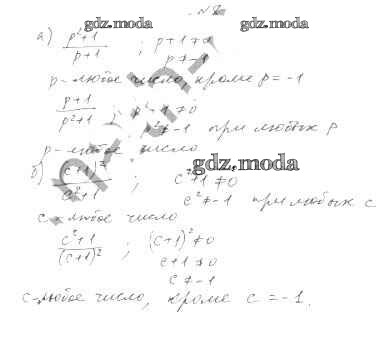 gdz.moda gdz.moda
а) p²+1 / p+1 ; p+1≠0
p≠-1
p-любое число, кроме p=-1
p+1 / p²+1 ; p²+1≠0
p²≠-1 при любых p
p-любое число
gdz.moda
б) (c+1)² / c²+1 ; c²+1≠0
c²≠-1 при любых c
c-любое число
c²+1 / (c+1)² ; (c+1)²≠0
c+1≠0
c≠-1
c-любое число, кроме c=-1.